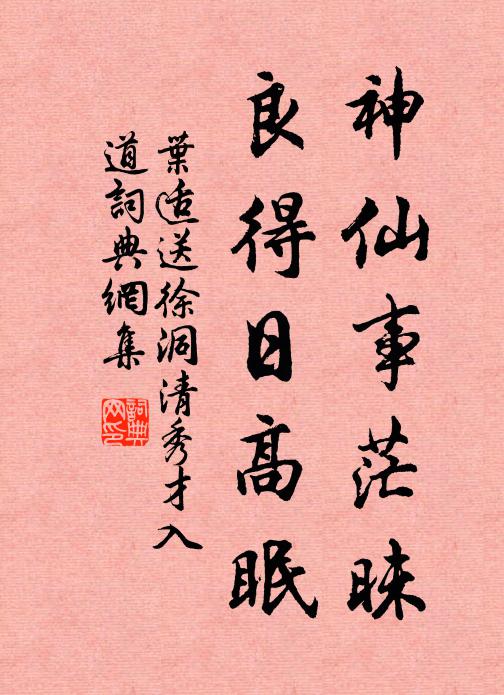 神仙事茫昧
良得日高眠
葉适送徐洞清秀才入
道詞典網集
詞典网印